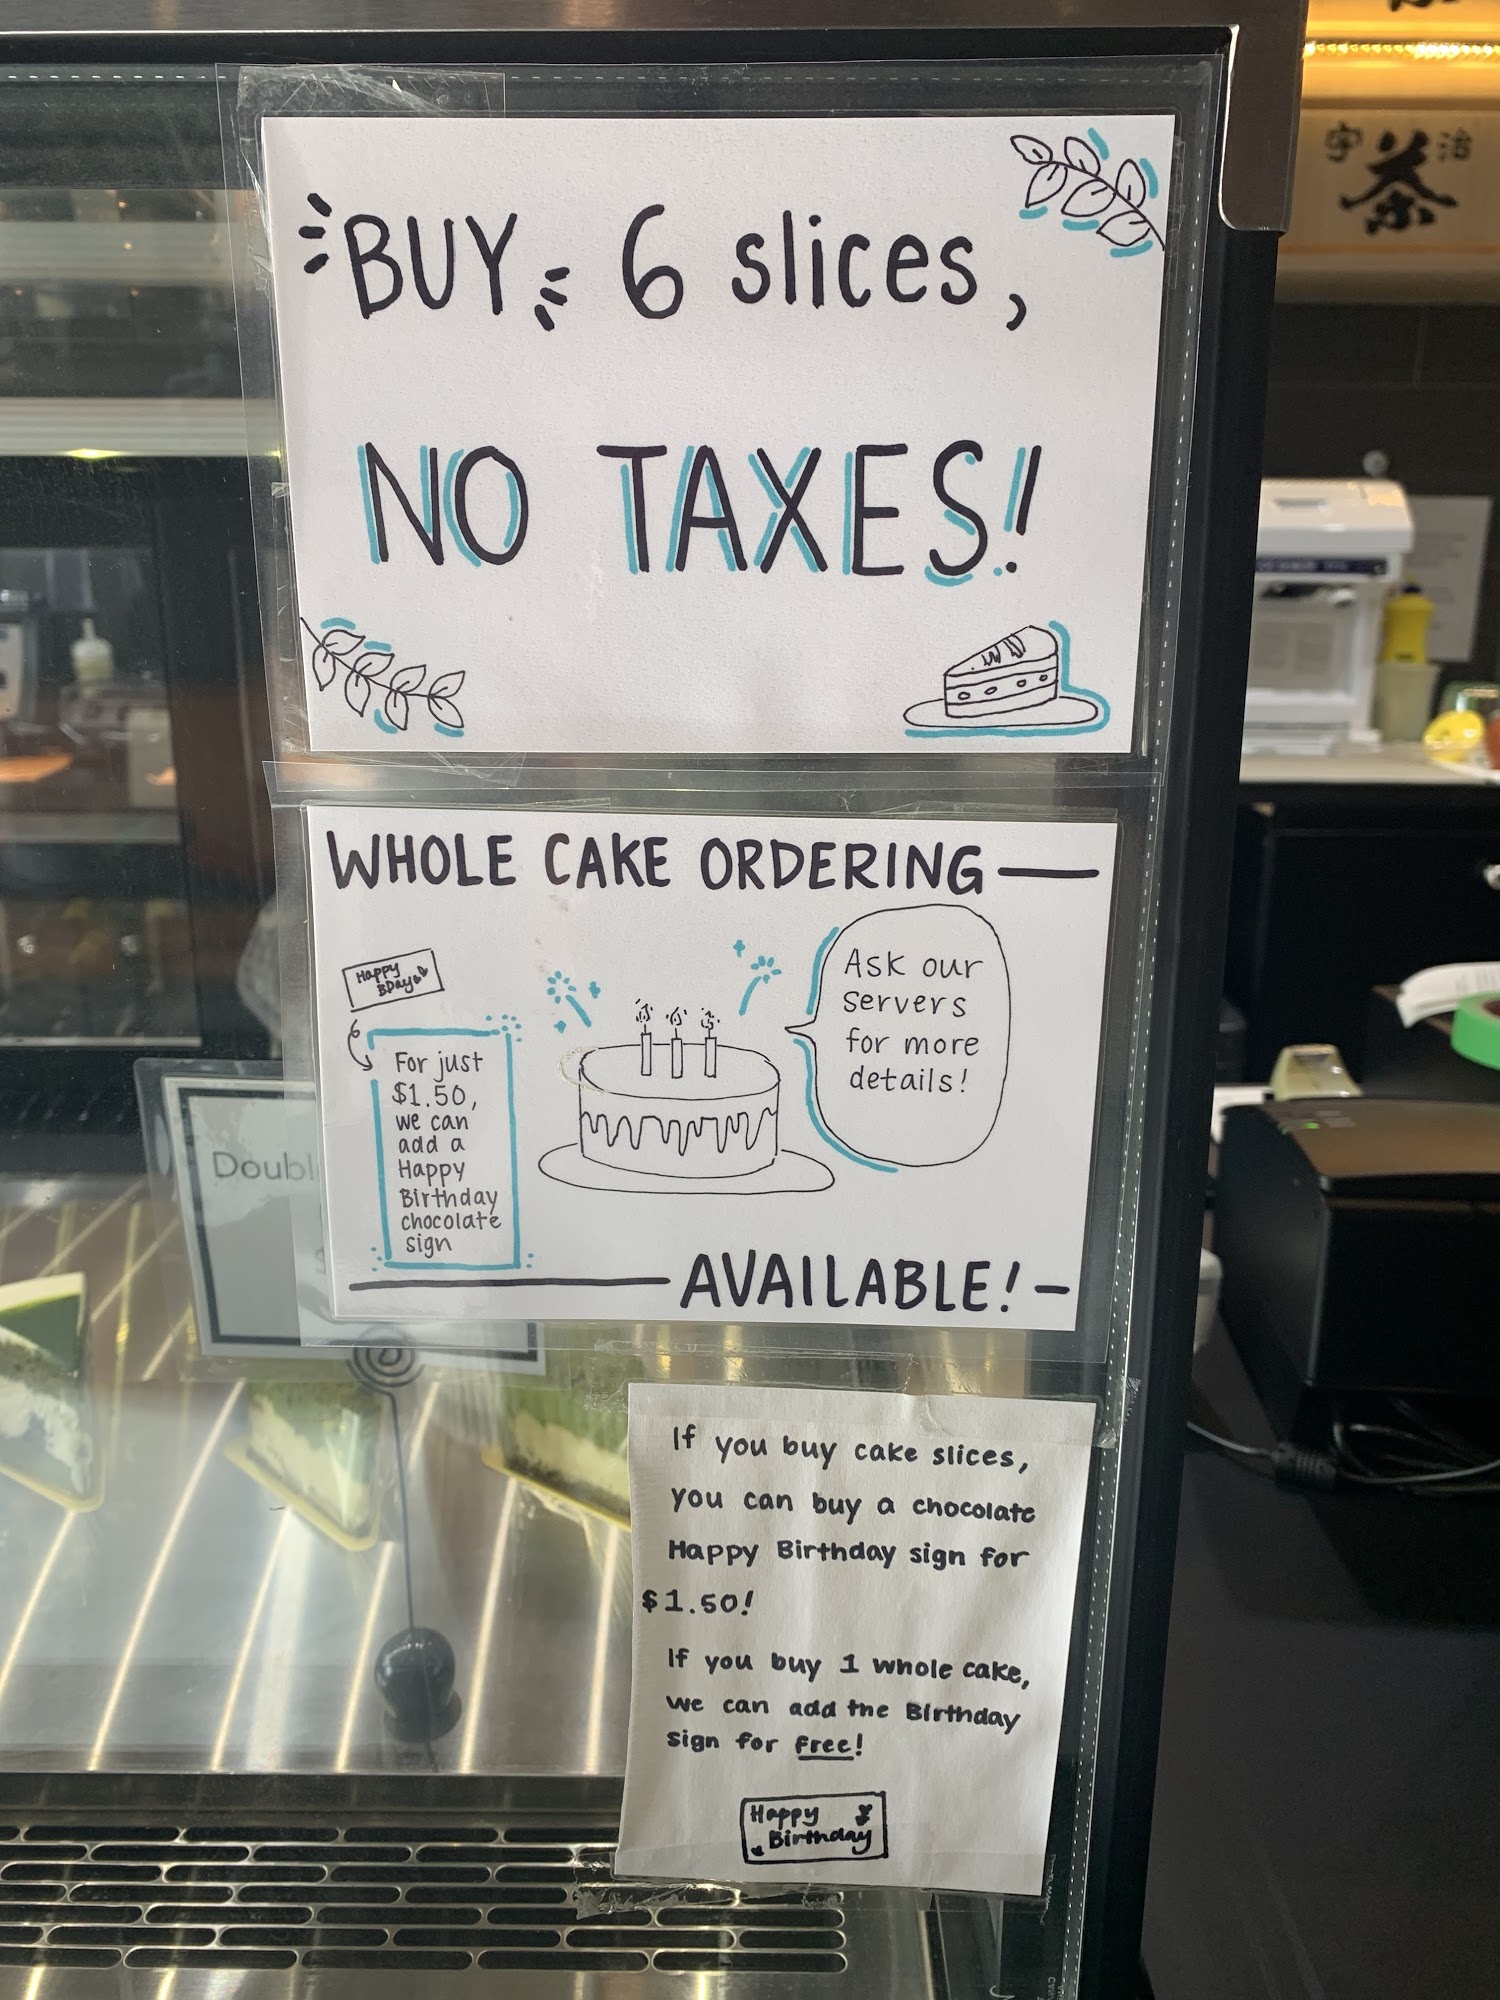 宇治
茶
BUY 6 slices,
NO TAXES!
WHOLE CAKE ORDERING
Happy
BDay
For just
$1.50,
we can
add a
Happy
Birthday
chocolate
sign
Ask our
servers
for more
details!
AVAILABLE!
If you buy cake slices,
you can buy a chocolate
Happy Birthday sign for
$1.50!
If you buy 1 whole cake,
we can add the Birthday
sign for free!
Happy
Birthday